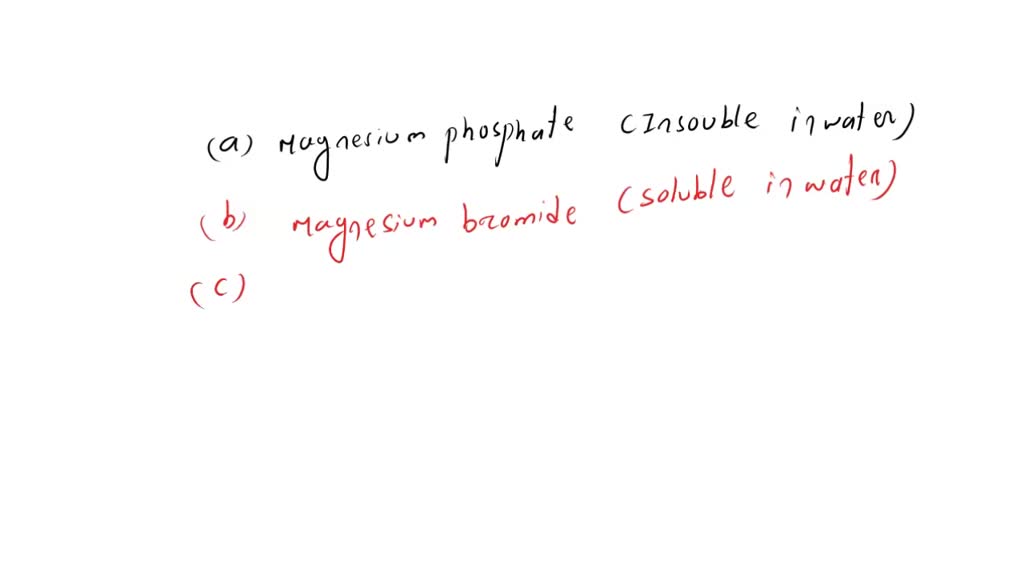 (a) Magnesium phosphate (Insouble in water)
(b) Magnesium bromide (soluble in water)
(c)